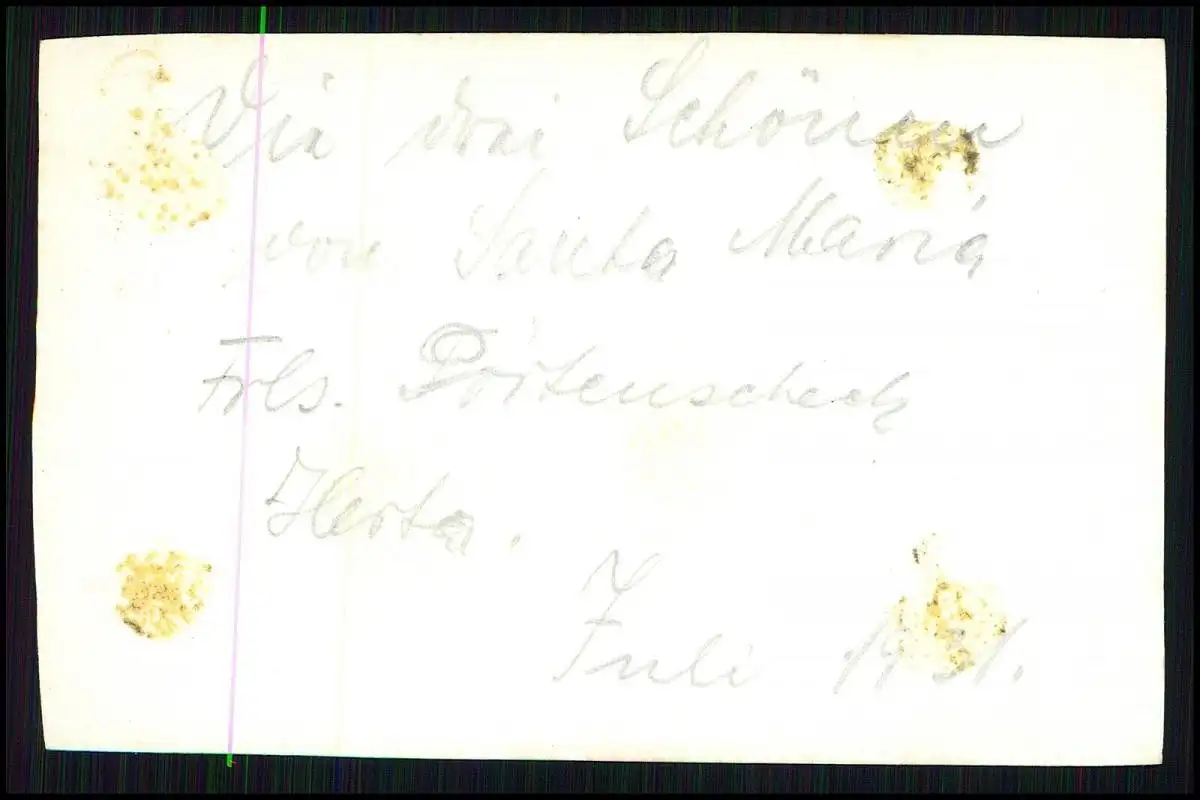 Die drei Schönen
von Santa Maria
Frls.
Herta.
Juli 1931.